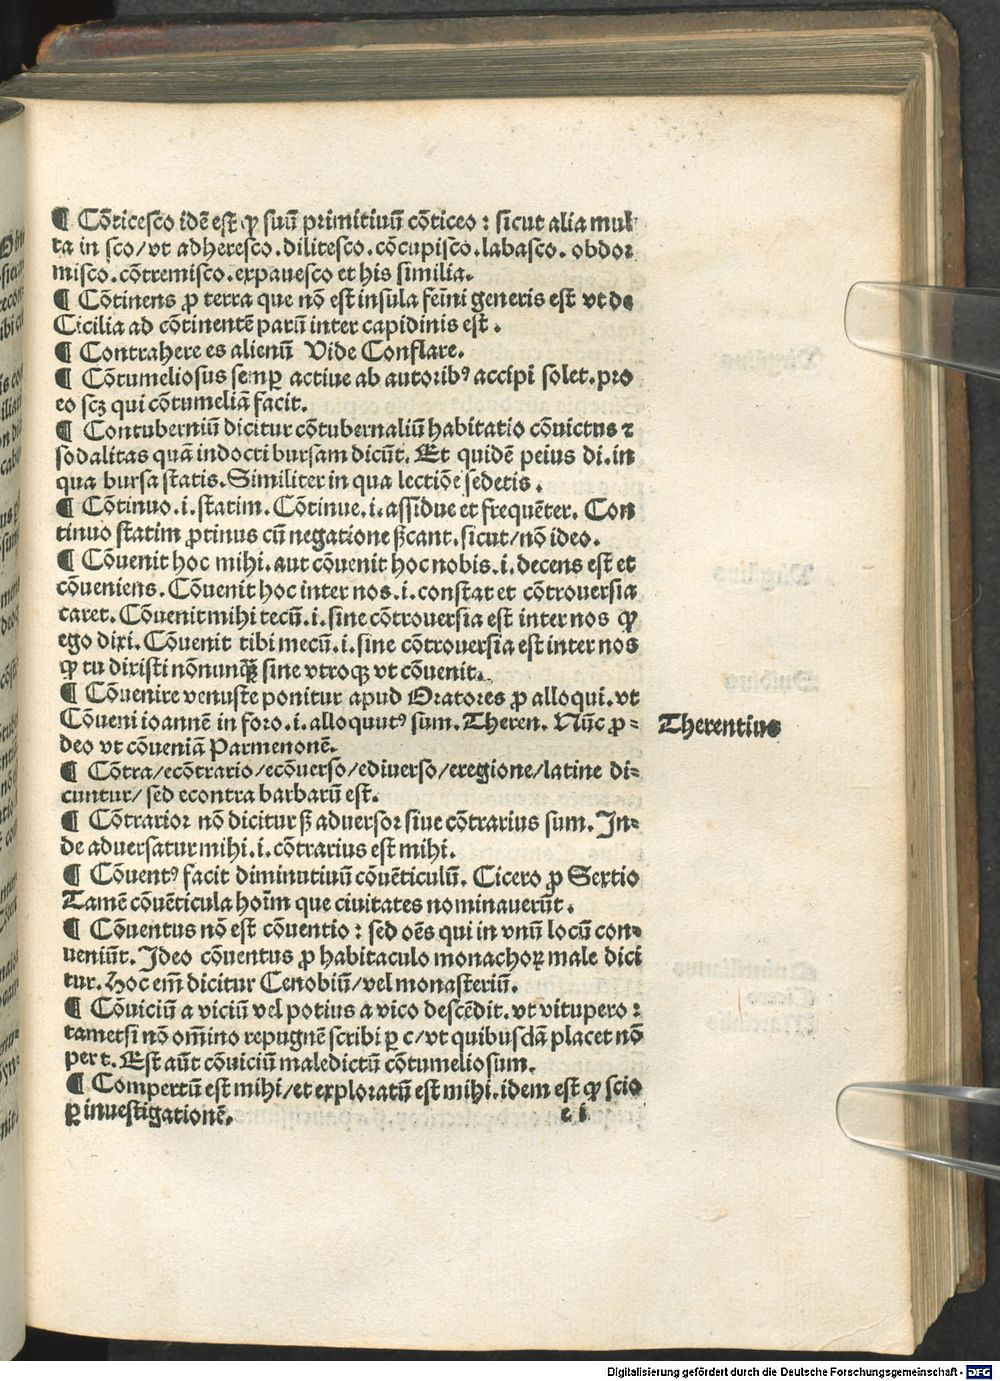 ¶ Cōticesco idē est ꝙ suū primitiuū cōticeo : sicut alia mul
ta in sco/vt adheresco.dilitesco.cōcupisco.labasco. obdor
misco.cōtremisco.expauesco et his similia.
¶ Cōtinens ꝓ terra que nō est insula fei̅ni generis est vt de
Cicilia ad cōtinentē parū inter capidinis est .
¶ Contrahere es alienū Vide Conflare.
¶ Cōtumeliosus semꝑ actiue ab autoribꝰ accipi solet. pro
eo scꝫ qui cōtumeliā facit.
¶ Contuberniū dicitur cōtubernaliū habitatio cōuictus ⁊
sodalitas quā indocti bursam dicūt. Et quidē peius di. in
qua bursa statis. Similiter in qua lectiōe sedetis .
¶ Cōtinuo .i. statim. Cōtinue .i. assidue et frequēter. Con
tinuo statim ꝓtinus cū negatione ßcant. sicut/nō ideo.
¶ Cōuenit hoc mihi. aut cōuenit hoc nobis .i. decens est et
cōueniens. Cōuenit hoc inter nos .i. constat et cōtrouersia
caret. Cōuenit mihi tecū .i. sine cōtrouersia est inter nos ꝙ
ego dixi. Cōuenit tibi mecū .i. sine cōtrouersia est inter nos
ꝙ tu dixisti nōnunꝙ̄ sine vtroqꝫ vt cōuenit.
¶ Cōuenire venuste ponitur apud Oratores ꝓ alloqui. vt
Cōueni ioannē in foro .i. alloquutꝰ sum. Theren. Nūc ꝓ-
deo vt cōueniā Parmenonē.
Therentius
¶ Cōtra/ecōtrario/ecōuerso/ediuerso/eregione/latine di-
cuntur/ sed econtra barbarū est.
¶ Cōtrarior nō dicitur ß aduersor siue cōtrarius sum. In-
de aduersatur mihi .i. cōtrarius est mihi.
¶ Cōuentꝰ facit diminutiuū cōuēticulū. Cicero ꝓ Sextio
Tamē cōuēticula hoīm que ciuitates nominauerūt .
¶ Cōuentus nō est cōuentio : sed oēs qui in vnū locū con-
ueniūt. Ideo cōuentus ꝓ habitaculo monachoꝝ male dici
tur. Hoc em̄ dicitur Cenobiū/vel monasteriū.
¶ Cōuiciū a viciū vel potius a vico descēdit. vt vitupero :
tametsi nō om̄ino repugnē scribi ꝑ c/vt quibusdā placet nō
per t. Est aūt cōuiciū maledictū cōtumeliosum.
¶ Compertū est mihi/et exploratū est mihi. idem est ꝙ scio
ꝑ inuestigationē.
e i
Digitalisierung gefördert durch die Deutsche Forschungsgemeinschaft - DFG